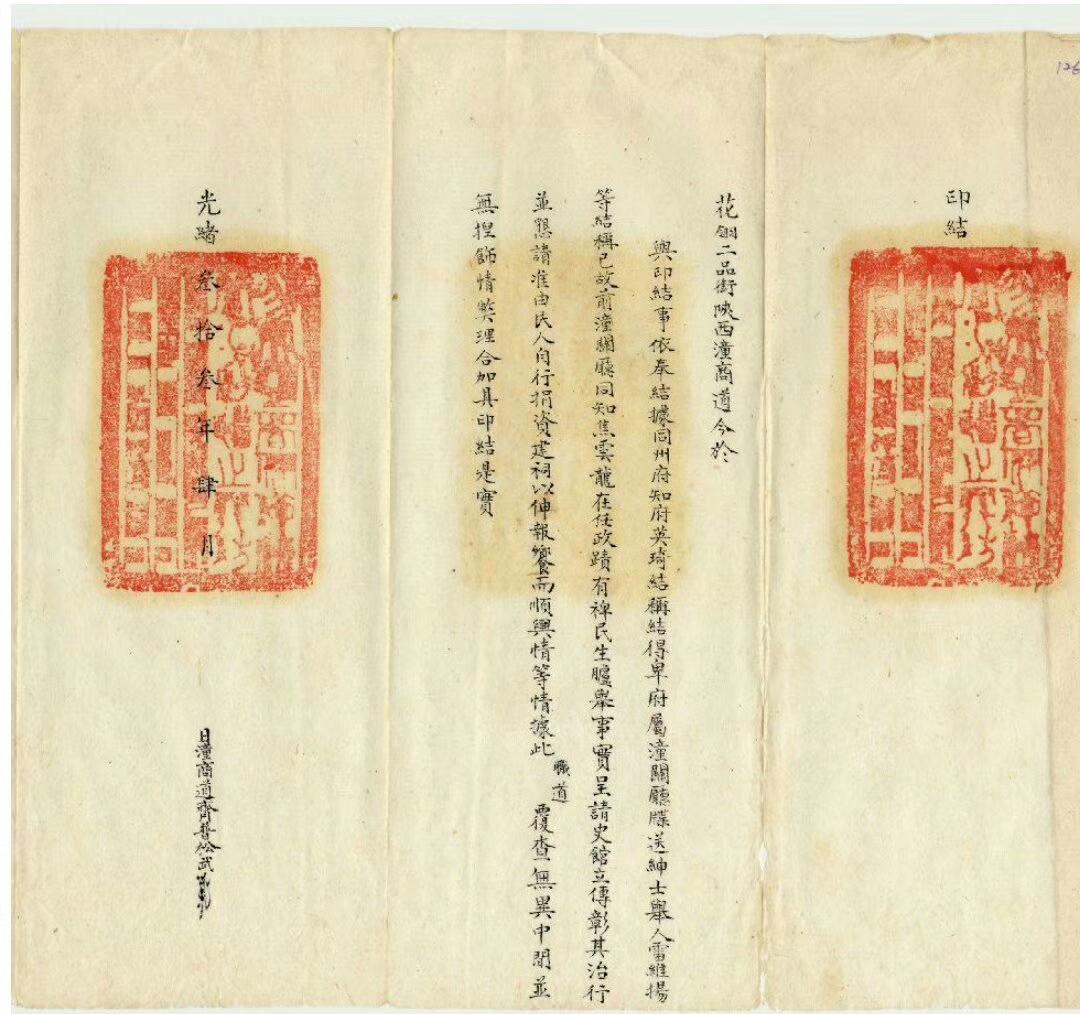 126
印結
花翎二品銜陝西潼商道今於
與印結事依奉結據同州府知府英琦結稱結得卑府屬潼關廳牒送紳士舉人雷維揚
等結稱已故前潼關廳同知焦雲龍在任政蹟有裨民生臚舉事實呈請史館立傳彰其治行
並懇請准由民人自行捐資建祠以伸報饗而順輿情等情據此職道覆查無異中間並
無捏飾情獘理合加具印結是實
光緒叁拾叁年肆月
日潼商道齊普松武